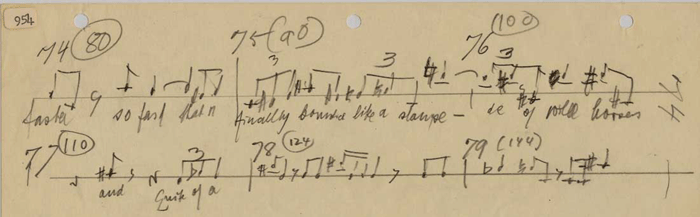 954
74 (80) 75 (90) 76 (100)
3 3 3
Faster so fast that finally sounds like a stampe - de of wild horses
77 (110) 78 (124) 79 (144)
3
and Quik of a